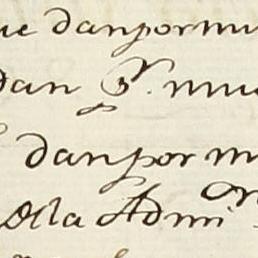 ue dan por mu
dan Pr. muc
dan por m
della Admi on